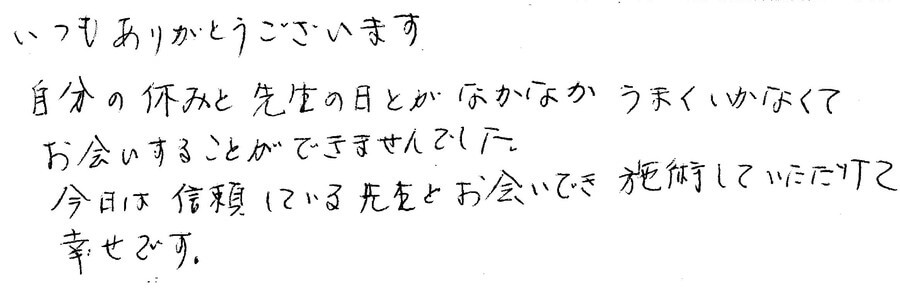 いつもありがとうございます
自分の休みと先生の日とがなかなかうまくいかなくて
お会いすることができませんでした。
今日は信頼している先生とお会いでき施術していただけて
幸せです。